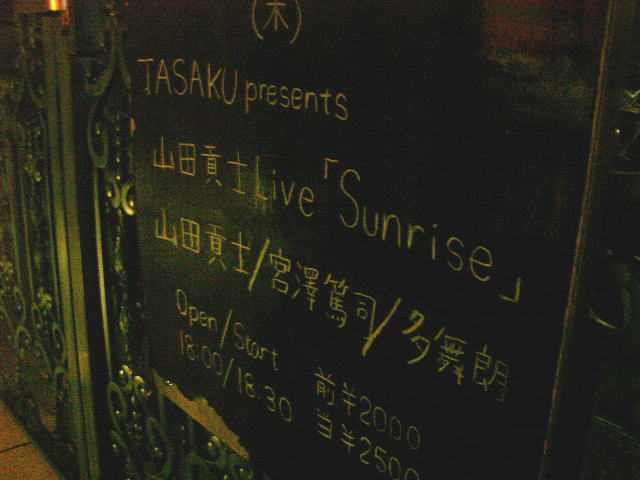 (木)
TASAKU presents
山田貢士 Live「Sunrise」
山田貢士/宮澤篤司/タ舞朗
Open/Start 前半2000
18:00/18:30 当半2500